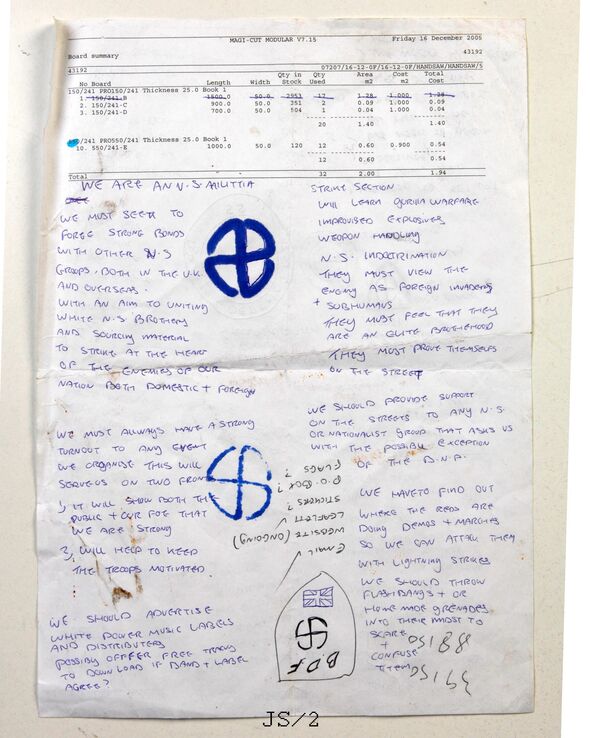 MAGI-CUT MODULAR V7.15
Friday 16 December 2005
Board summary
43192
43192
07207/16-12-0F/16-12-0F/HANDSAW/HANDSAW/5
No Board Length Width Qty in Stock Qty Used Area m2 Cost m2 Total Cost
150/241 PRO150/241 Thickness 25.0 Book 1
1. 150/241-B 1500.0 50.0 2953 17 1.28 1.000 1.28
2. 150/241-C 900.0 50.0 351 2 0.09 1.000 0.09
3. 150/241-D 700.0 50.0 504 1 0.04 1.000 0.04
20 1.40 1.40
/241 PRO550/241 Thickness 25.0 Book 1
10. 550/241-E 1000.0 50.0 120 12 0.60 0.900 0.54
12 0.60 0.54
Total 32 2.00 1.94
WE ARE AN N.S. MILITIA
WE MUST SEEK TO
FORGE STRONG BONDS
WITH OTHER N.S
GROUPS. BOTH IN THE U.K
AND OVERSEAS.
WITH AN AIM TO UNITING
WHITE N.S BROTHERS
AND SOURCING MATERIAL
TO STRIKE AT THE HEART
OF THE ENEMIES OF OUR
NATION BOTH DOMESTIC + FOREIGN
WE MUST ALLWAYS HAVE A STRONG
TURNOUT TO ANY EVENT
WE ORGANISE THIS WILL
SERVE US ON TWO FRONTS
1, IT WILL SHOW BOTH THE
PUBLIC + OUR FOE THAT
WE ARE STRONG
2, WILL HELP TO KEEP
THE TROOPS MOTIVATED
WE SHOULD ADVERTISE
WHITE POWER MUSIC LABELS
AND DISTRIBUTERS
POSSIBLY OFFFER FREE TRACKS
TO DOWNLOAD IF BAND + LABEL
AGREE?
STRIKE SECTION
WILL LEARN GURILLA WARFARE
IMPROVISED EXPLOSIVES
WEAPON HANDLING
N.S. INDOCTRINATION
THEY MUST VIEW THE
ENEMY AS FOREIGN INVADERS
+ SUBHUMANS
THEY MUST FEEL THAT THEY
ARE AN ELITE BROTHERHOOD
THEY MUST PROVE THEMSELFS
ON THE STREET
WE SHOULD PROVIDE SUPPORT
ON THE STREETS TO ANY N.S.
OR NATIONALIST GROUP THAT ASKS US
WITH THE POSSIBLE EXCEPTION
OF THE B.N.P.
WE HAVE TO FIND OUT
WHERE THE REDS ARE
DOING DEMOS + MARCHES
SO WE CAN ATTACK THEM
WITH LIGHTNING STRIKES
WE SHOULD THROW
FLASHBANGS + OR
HOME MADE GRENADES
INTO THEIR MIDST TO
SCARE
+
CONFUSE
THEM
EMAIL
WEBSITE (ONGOING)
LEAFLETT
STICKERS?
P.O. BOX?
FLAGS?
B.D.F
JS/2